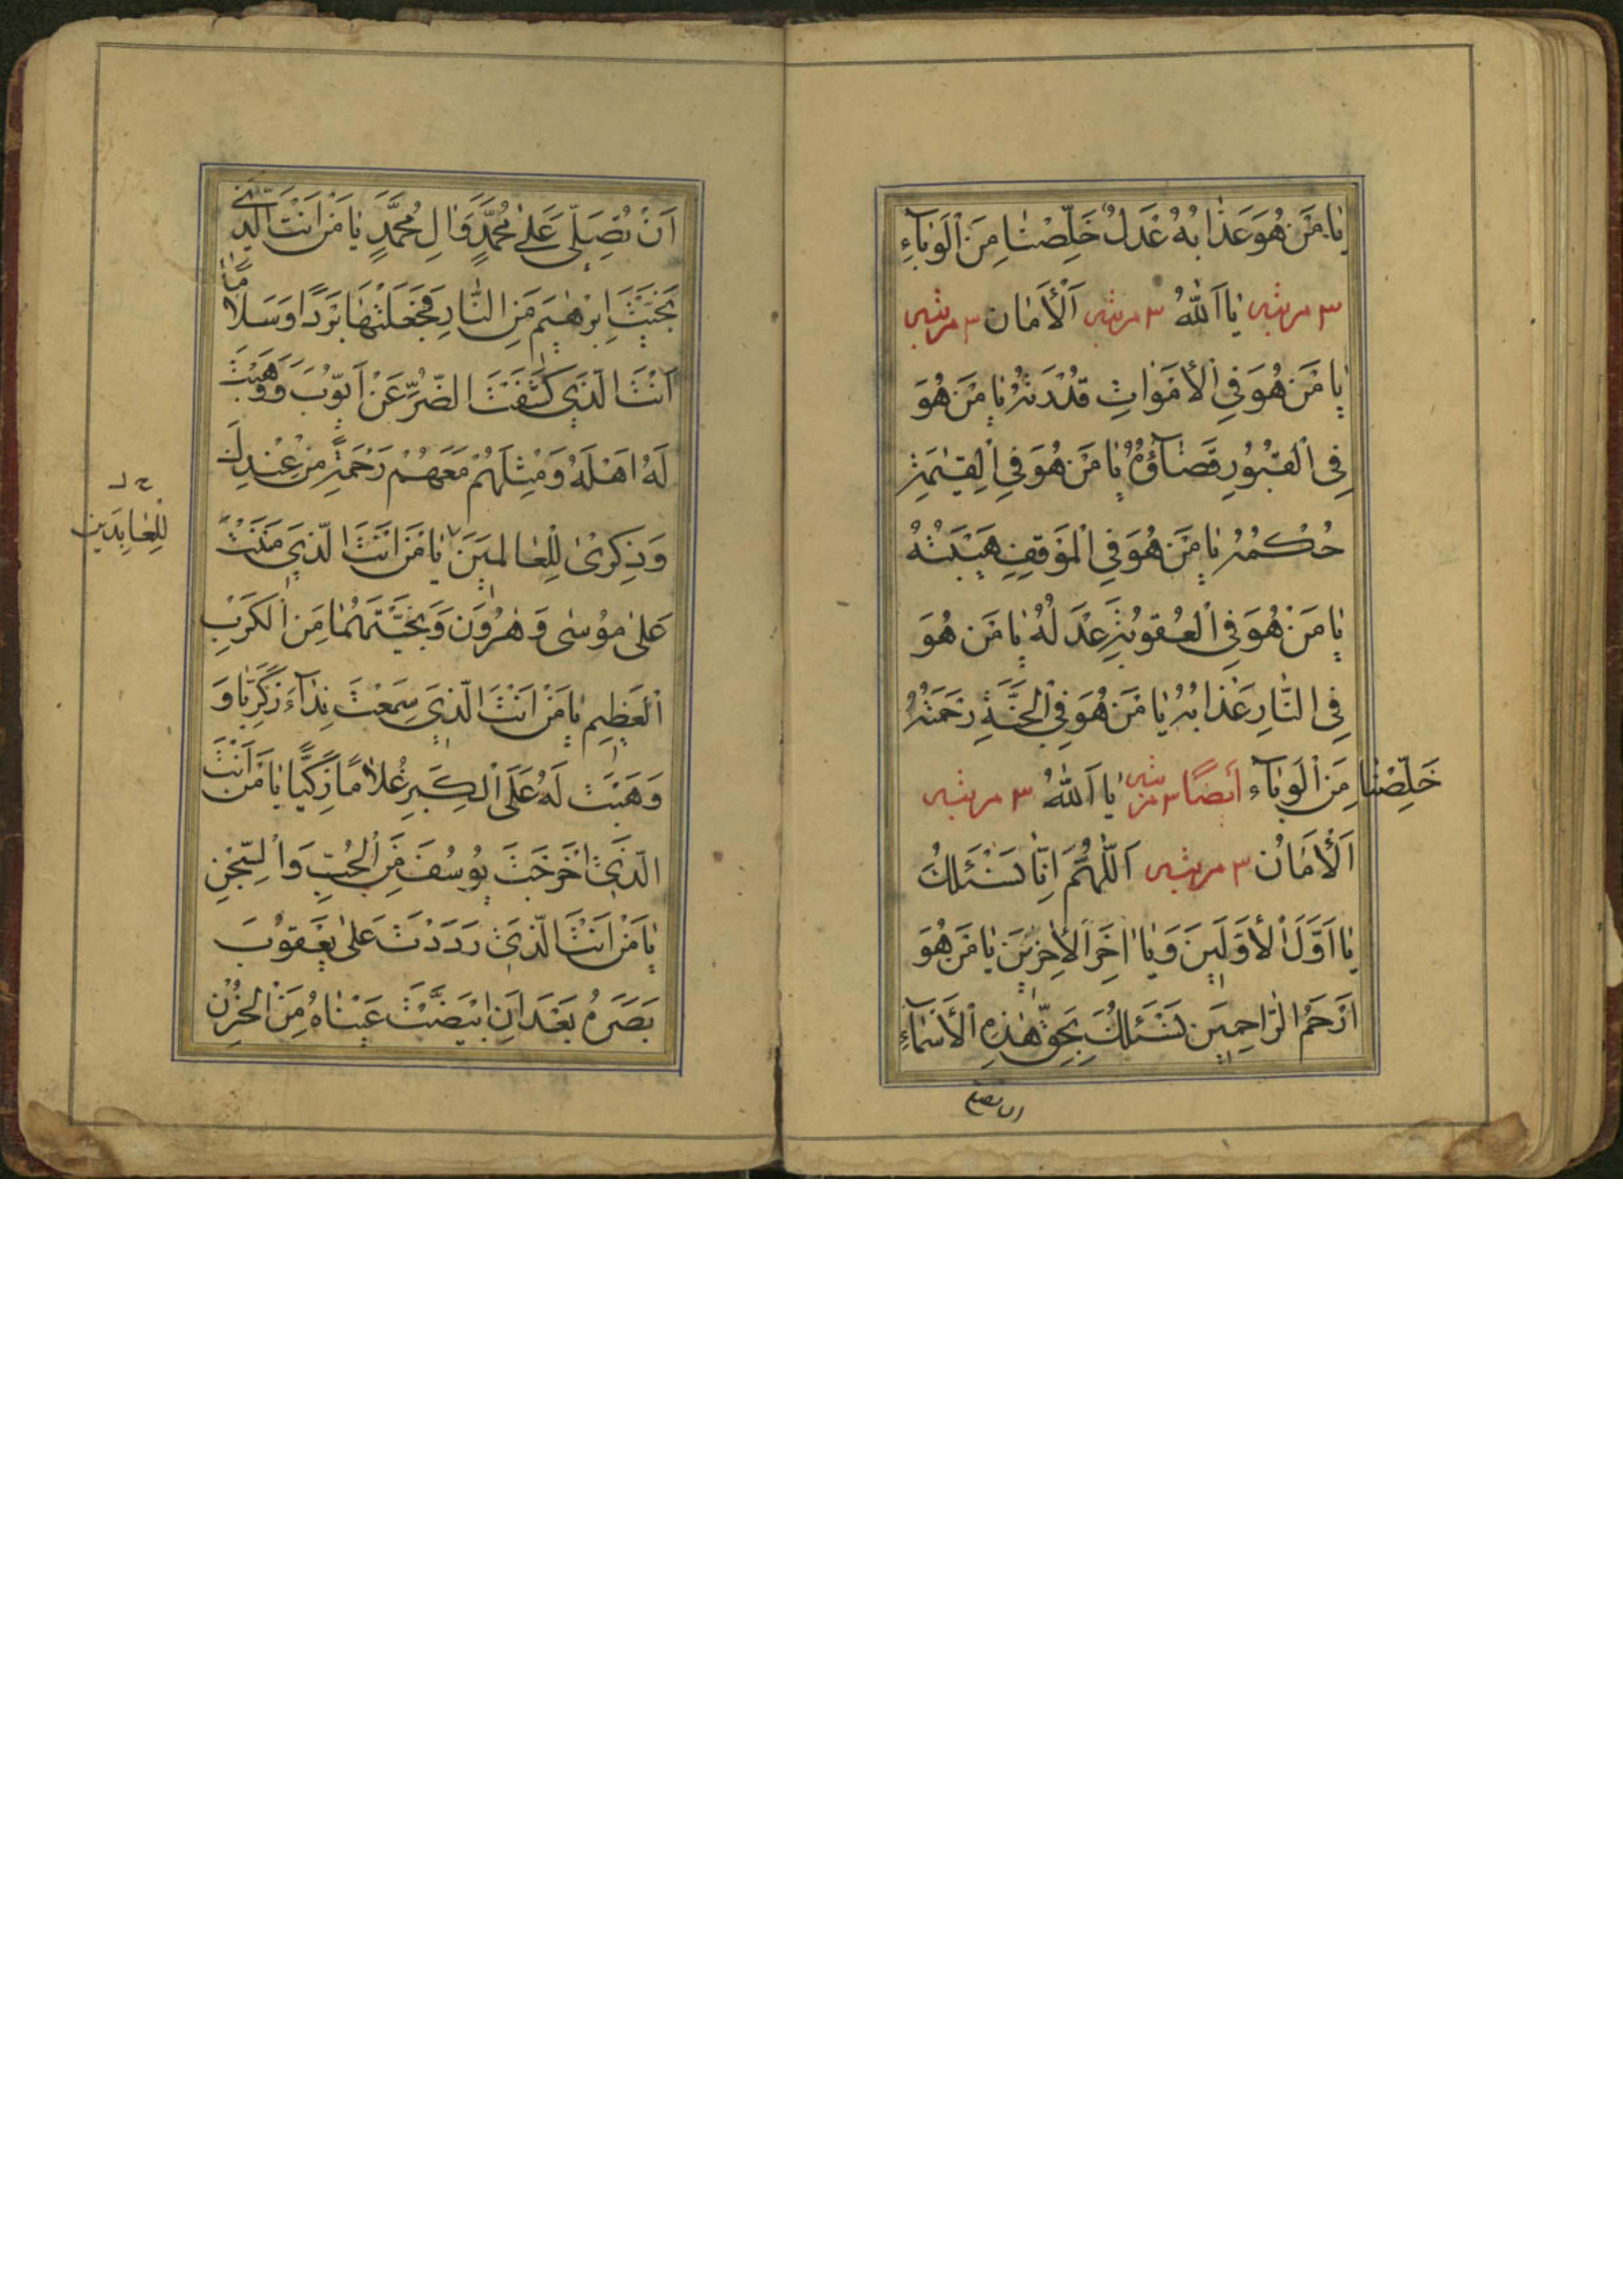 يَا مَنْ هُوَ عَذَابُهُ عَدْلٌ خَلِّصْنَا مِنَ الْوَبَآءِ
٣ مرتبه يَا اَللّٰهُ ٣ مرتبه اَلْأَمَان ٣ مرتبه
يَا مَنْ هُوَ فِي الْأَمْوَاتِ قُدْرَتُهُ يَا مَنْ هُوَ
فِي الْقُبُورِ قَضَآؤُهُ يَا مَنْ هُوَ فِي الْقِيٰمَةِ
حُكْمُهُ يَا مَنْ هُوَ فِي الْمَوْقِفِ هَيْبَتُهُ
يَا مَنْ هُوَ فِي الْعُقُوبَةِ عَدْلُهُ يَا مَنْ هُوَ
فِي النَّارِ عَذَابُهُ يَا مَنْ هُوَ فِي الْجَنَّةِ رَحْمَتُهُ
خَلِّصْنَا مِنَ الْوَبَآءِ أَيضًا ٣ مرتبه يَا اَللّٰهُ ٣ مرتبه
اَلْأَمَانُ ٣ مرتبه اَللّٰهُمَّ اِنَّا نَسْئَلُكَ
يَا اَوَّلَ الْأَوَّلِينَ وَيَا اٰخِرَ الْاٰخِرِينَ يَا مَنْ هُوَ
اَرْحَمُ الرَّاحِمِينَ نَسْئَلُكَ بِحَقِّ هٰذِهِ الْأَسْمَآءِ
ان تصلي
اَنْ تُصَلِّيَ عَلٰى مُحَمَّدٍ وَاٰلِ مُحَمَّدٍ يَا مَنْ اَنْتَ الَّذِي
نَجَّيْتَ اِبْرٰهِيمَ مِنَ النَّارِ فَجَعَلْتَهَا بَرْدًا وَسَلَامًا
اَنْتَ الَّذِي كَشَفْتَ الضُّرَّ عَنْ اَيُّوبَ وَوَهَبْتَ
لَهُ اَهْلَهُ وَمِثْلَهُمْ مَعَهُمْ رَحْمَةً مِنْ عِنْدِكَ
وَذِكْرٰى لِلْعَالَمِينَ يَا مَنْ اَنْتَ الَّذِي مَنَنْتَ
لِلْعَابِدِينَ
عَلٰى مُوسٰى وَهٰرُونَ وَنَجَّيْتَهُمَا مِنَ الْكَرْبِ
الْعَظِيمِ يَا مَنْ اَنْتَ الَّذِي سَمِعْتَ نِدَآءَ زَكَرِيَّا وَ
وَهَبْتَ لَهُ عَلَى الْكِبَرِ غُلَامًا زَكِيًّا يَا مَنْ اَنْتَ
الَّذِي اَخْرَجْتَ يُوسُفَ مِنَ الْجُبِّ وَالسِّجْنِ
يَا مَنْ اَنْتَ الَّذِي رَدَدْتَ عَلٰى يَعْقُوبَ
بَصَرَهُ بَعْدَ اَنِ ابْيَضَّتْ عَيْنَاهُ مِنَ الْحُزْنِ